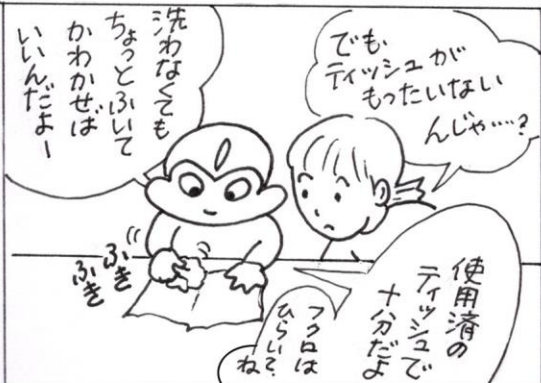 でも
ティッシュが
もったいない
んじゃ……?
洗わなくても
ちょっとふいて
かわかせば
いいんだよー
ふき
ふき
使用済の
ティッシュで
十分だよ
フクロは
ひらいて、
ね